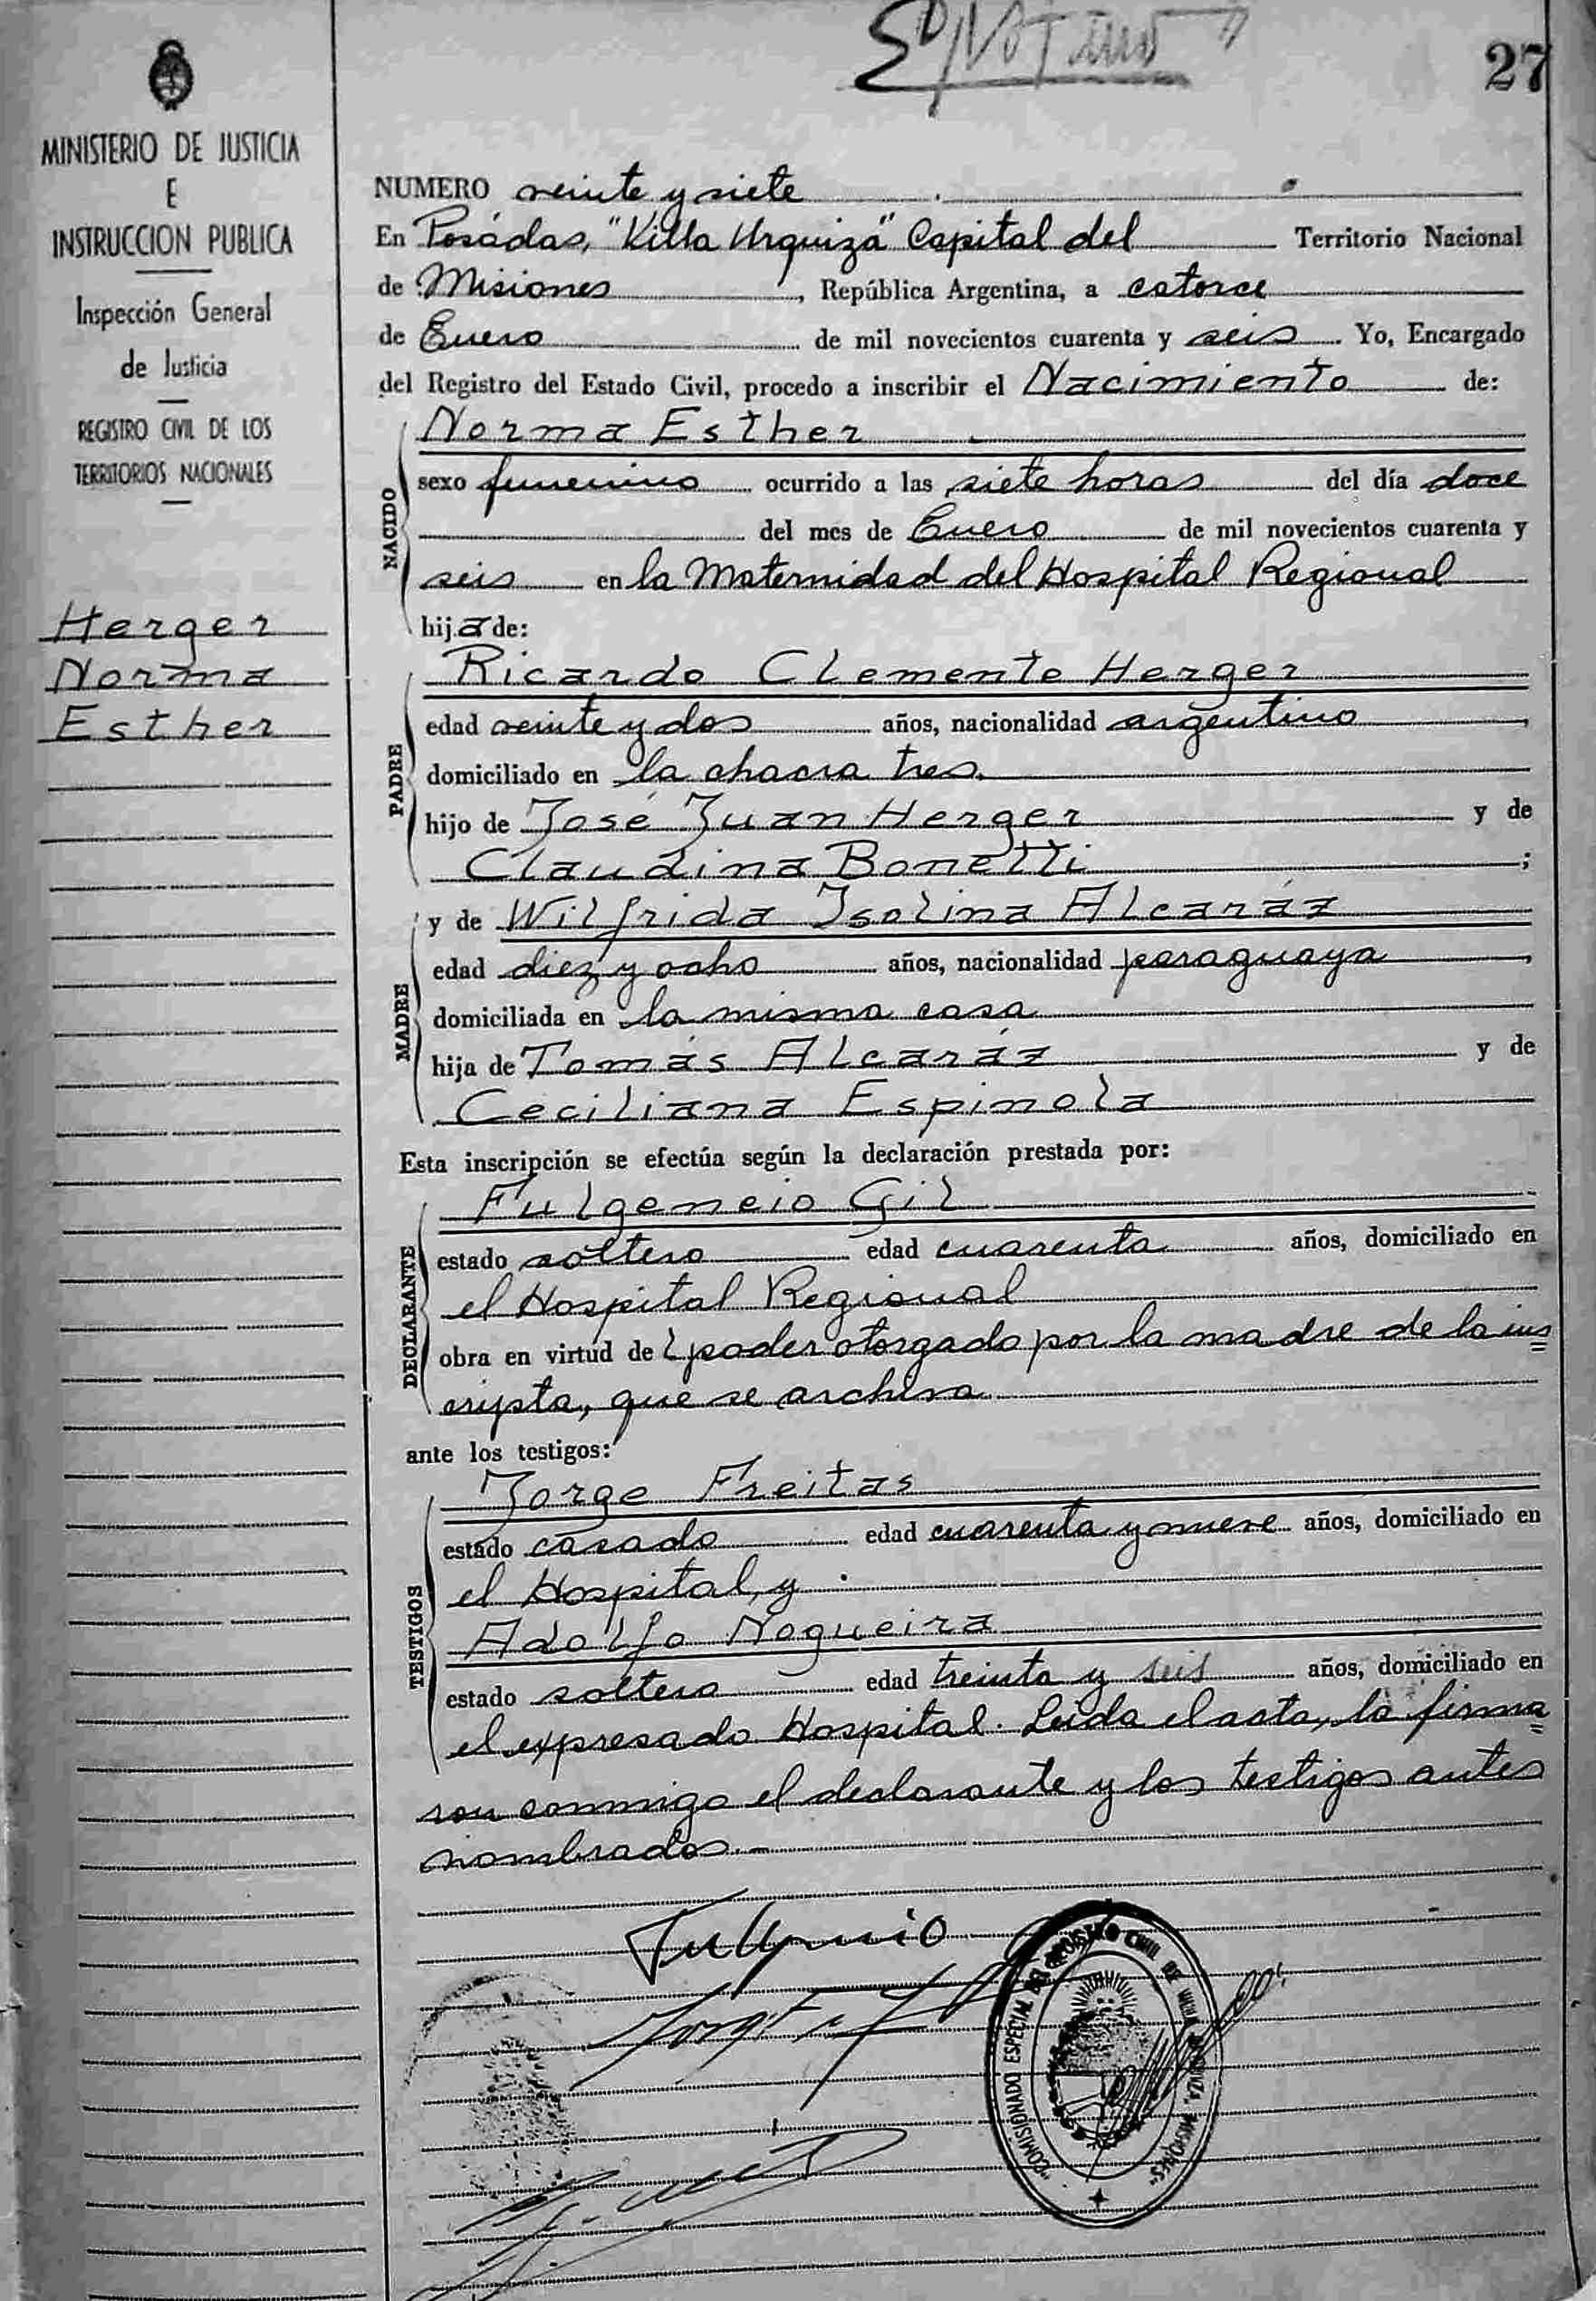 27
MINISTERIO DE JUSTICIA
E
INSTRUCCION PUBLICA
Inspección General
de Justicia
REGISTRO CIVIL DE LOS
TERRITORIOS NACIONALES
Herger
Norma
Esther
NUMERO veinte y siete
En Posadas, "Villa Urquiza" Capital del Territorio Nacional
de Misiones, República Argentina, a catorce
de Enero de mil novecientos cuarenta y seis. Yo, Encargado
del Registro del Estado Civil, procedo a inscribir el Nacimiento de:
Norma Esther
NACIDO
sexo femenino ocurrido a las siete horas del día doce
del mes de Enero de mil novecientos cuarenta y
seis en la Maternidad del Hospital Regional
hija de:
Ricardo Clemente Herger
PADRE
edad veinte y dos años, nacionalidad argentino,
domiciliado en la chacra tres.
hijo de José Juan Herger y de
Claudina Bonetti;
y de Wilfrida Isolina Alcaráz
MADRE
edad diez y ocho años, nacionalidad paraguaya,
domiciliada en la misma casa
hija de Tomás Alcaráz y de
Ceciliana Espinola
Esta inscripción se efectúa según la declaración prestada por:
Fulgencio Gil
DECLARANTE
estado soltero edad cuarenta años, domiciliado en
el Hospital Regional
obra en virtud del poder otorgado por la madre de la ins=
cripta, que se archiva
ante los testigos:
Jorge Freitas
TESTIGOS
estado casado edad cuarenta y nueve años, domiciliado en
el Hospital, y
Adolfo Nogueira
estado soltero edad treinta y seis años, domiciliado en
el expresado Hospital. Leida el acta, la firma=
ron conmigo el declarante y los testigos antes
nombrados.-
"COMISIONADO ESPECIAL DEL REGISTRO CIVIL DE VILLA URQUIZA, MISIONES"